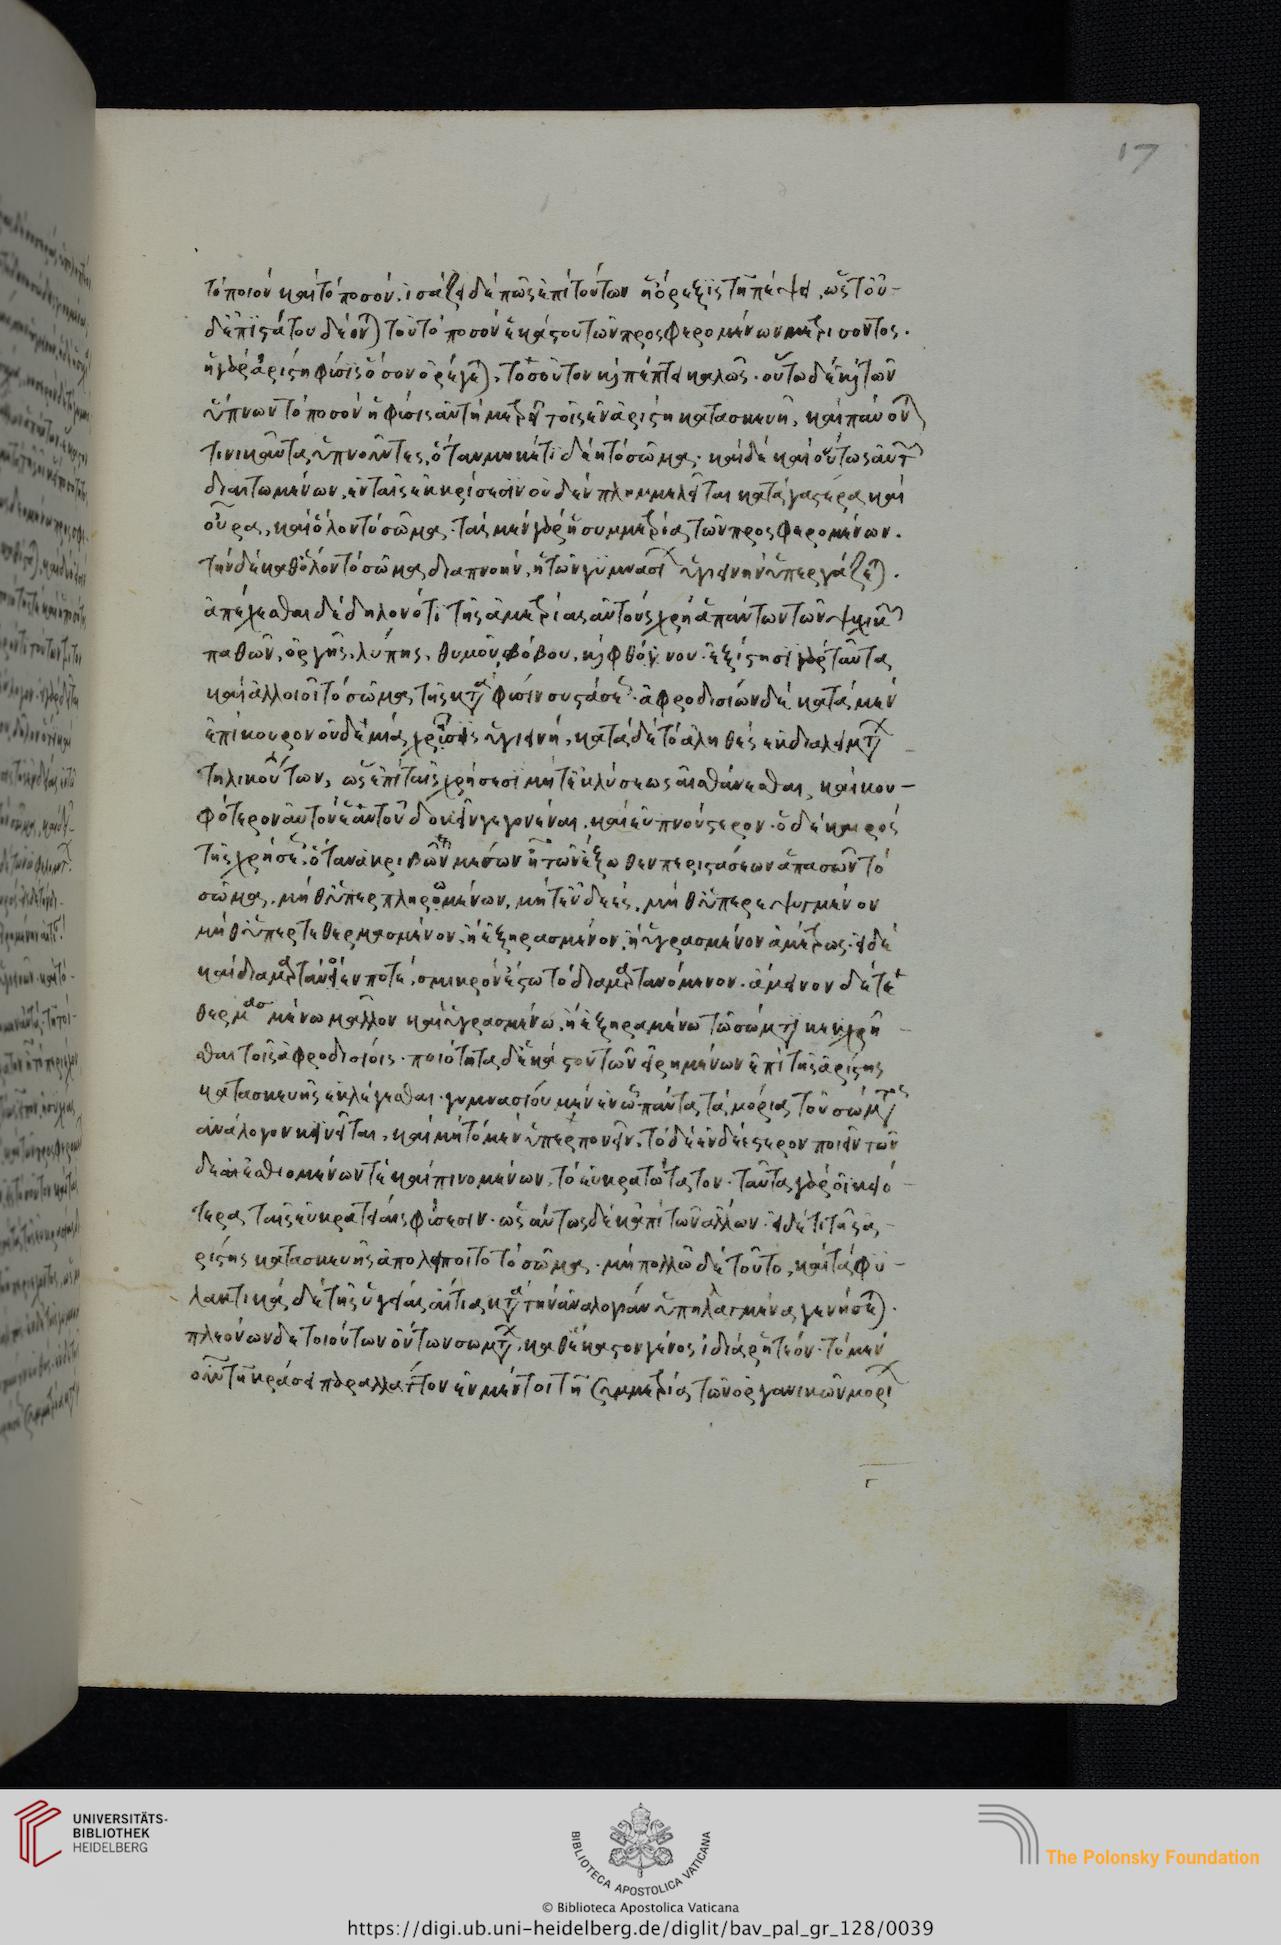 17
τὸ ποιὸν καὶ τὸ ποσόν. ἰσάζει δέ πως ἐπὶ τούτων ἡ ὄρεξις τῇ πέψει, ὥστ' οὐ-
δ' ἐπιστάτου δέονται τοῦ τὸ ποσὸν ἑκάστου τῶν προσφερομένων μετρήσοντος.
ἡ γὰρ ἀρίστη φύσις ὅσον ὀρέγεται, τοσοῦτον καὶ πέπτει καλῶς. οὕτω δὲ καὶ τῶν
ὕπνων τὸ ποσὸν ἡ φύσις αὐτὴ μετρεῖ τοῖς ἐν ἀρίστῃ κατασκευῇ, καὶ παύονται
τηνικαῦτα ὑπνοῦντες, ὅταν μηκέτι δέηται τὸ σῶμα. καὶ δὲ καὶ οὕτως αὐτῶν
διαιτωμένων, ἐν ταῖς ἐκκρίσεσιν οὐδὲν πλημμελεῖται κατὰ γαστέρα καὶ
οὖρα, καὶ ὅλον τὸ σῶμα. τὰς μὲν γὰρ ἡ συμμετρία τῶν προσφερομένων.
τὴν δὲ καθ' ὅλον τὸ σῶμα διαπνοήν, ἡ τῶν γυμνασίων ὑγιεινὴν ὑπεργάζεται.
ἀπέχεσθαι δὲ δηλονότι τῆς ἀμετρίας αὐτοὺς χρὴ ἁπάντων τῶν ψυχικῶν
παθῶν, ὀργῆς, λύπης, θυμοῦ, φόβου, καὶ φθόνου. ἐξίστησι γὰρ ταῦτα
καὶ ἀλλοιοῖ τὸ σῶμα τῆς κατὰ φύσιν συστάσεως. ἀφροδισίων δὲ κατὰ μὲν
ἐπίκουρον οὐδεμία χρῆσις ὑγιεινή, κατὰ δὲ τὸ ἀληθὲς ἐκ διαλειμμάτων
τηλικούτων, ὡς ἐπὶ ταῖς χρήσεσι μήτ' ἐκλύσεως αἰσθάνεσθαι, καὶ κου-
φότερον αὐτὸν ἑαυτοῦ δοκεῖν γεγονέναι, καὶ εὐπνούστερον. ὁ δὲ καιρὸς
τῆς χρήσεως, ὅταν ἀκριβῶς ἢ μέσον ᾖ τῶν ἔξωθεν περιστάσεων ἁπασῶν τὸ
σῶμα, μήθ' ὑπερπληρωμένον, μήτ' ἐνδεές, μήθ' ὑπερεψυγμένον
μήθ' ὑπερτεθερμασμένον, ἢ ἐξηρασμένον, ἢ ὑγρασμένον ἀμέτρως. εἰ δὲ
καὶ διαμαρτάνοιέν ποτε, σμικρὸν ἔστω τὸ διαμαρτανόμενον. ἄμεινον δὲ τε-
θερμασμένῳ μᾶλλον καὶ ὑγρασμένῳ, ἢ ἐξηραμένῳ τῷ σώματι κεχρῆ-
σθαι τοῖς ἀφροδισίοις. ποιότητα δ' ἑκάστου τῶν εἰρημένων ἐπὶ τῆς ἀρίστης
κατασκευῆς ἐκλέγεσθαι. γυμνασίου μὲν ἐν ᾧ πάντα τὰ μόρια τοῦ σώματος
ἀνάλογον κινεῖται, καὶ μὴ τὸ μὲν ὑπερπονεῖν, τὸ δὲ ἐνδεέστερον ποιεῖν τῶν
δὲ ἐσθιομένων τε καὶ πινομένων, τὸ εὐκρατώτατον. ταῦτα γὰρ οἰκειό-
τερα ταῖς εὐκράτοις φύσεσιν. ὡσαύτως δὲ κἀπὶ τῶν ἄλλων. εἰ δέ τι τῆς ἀ-
ρίστης κατασκευῆς ἀπολείποιτο τὸ σῶμα, μὴ πολλῷ δὲ τοῦτο, καὶ τὰ φυ-
λακτικὰ δὲ τῆς ὑγείας αἴτια κατὰ τὴν ἀναλογίαν ὑπηλλαγμένα γενήσεται.
πλεόνων δὲ τοιούτων ὄντων σωμάτων, καθ' ἕκαστον γένος ἰδίᾳ ῥητέον. τὸ μὲν
οὖν τῇ κράσει παραλλάττον ἐν μέντοι τῇ συμμετρίᾳ τῶν ὀργανικῶν μορίων
UNIVERSITÄTS-
BIBLIOTHEK
HEIDELBERG
BIBLIOTECA APOSTOLICA VATICANA
The Polonsky Foundation
© Biblioteca Apostolica Vaticana
https://digi.ub.uni-heidelberg.de/diglit/bav_pal_gr_128/0039